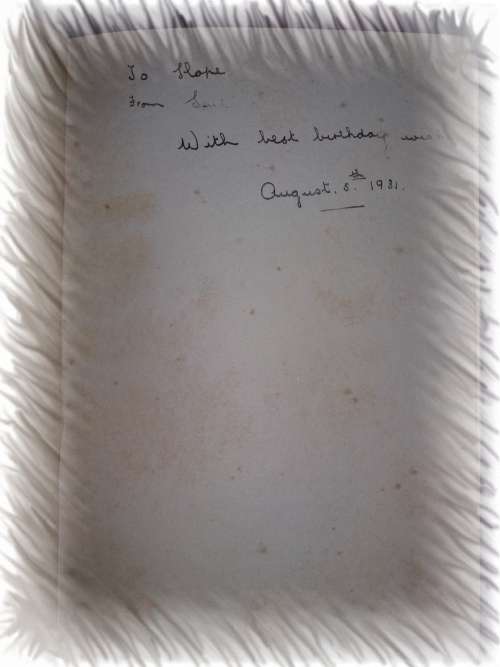 To Hope
From
With best birthday
August. 8.th 1931.